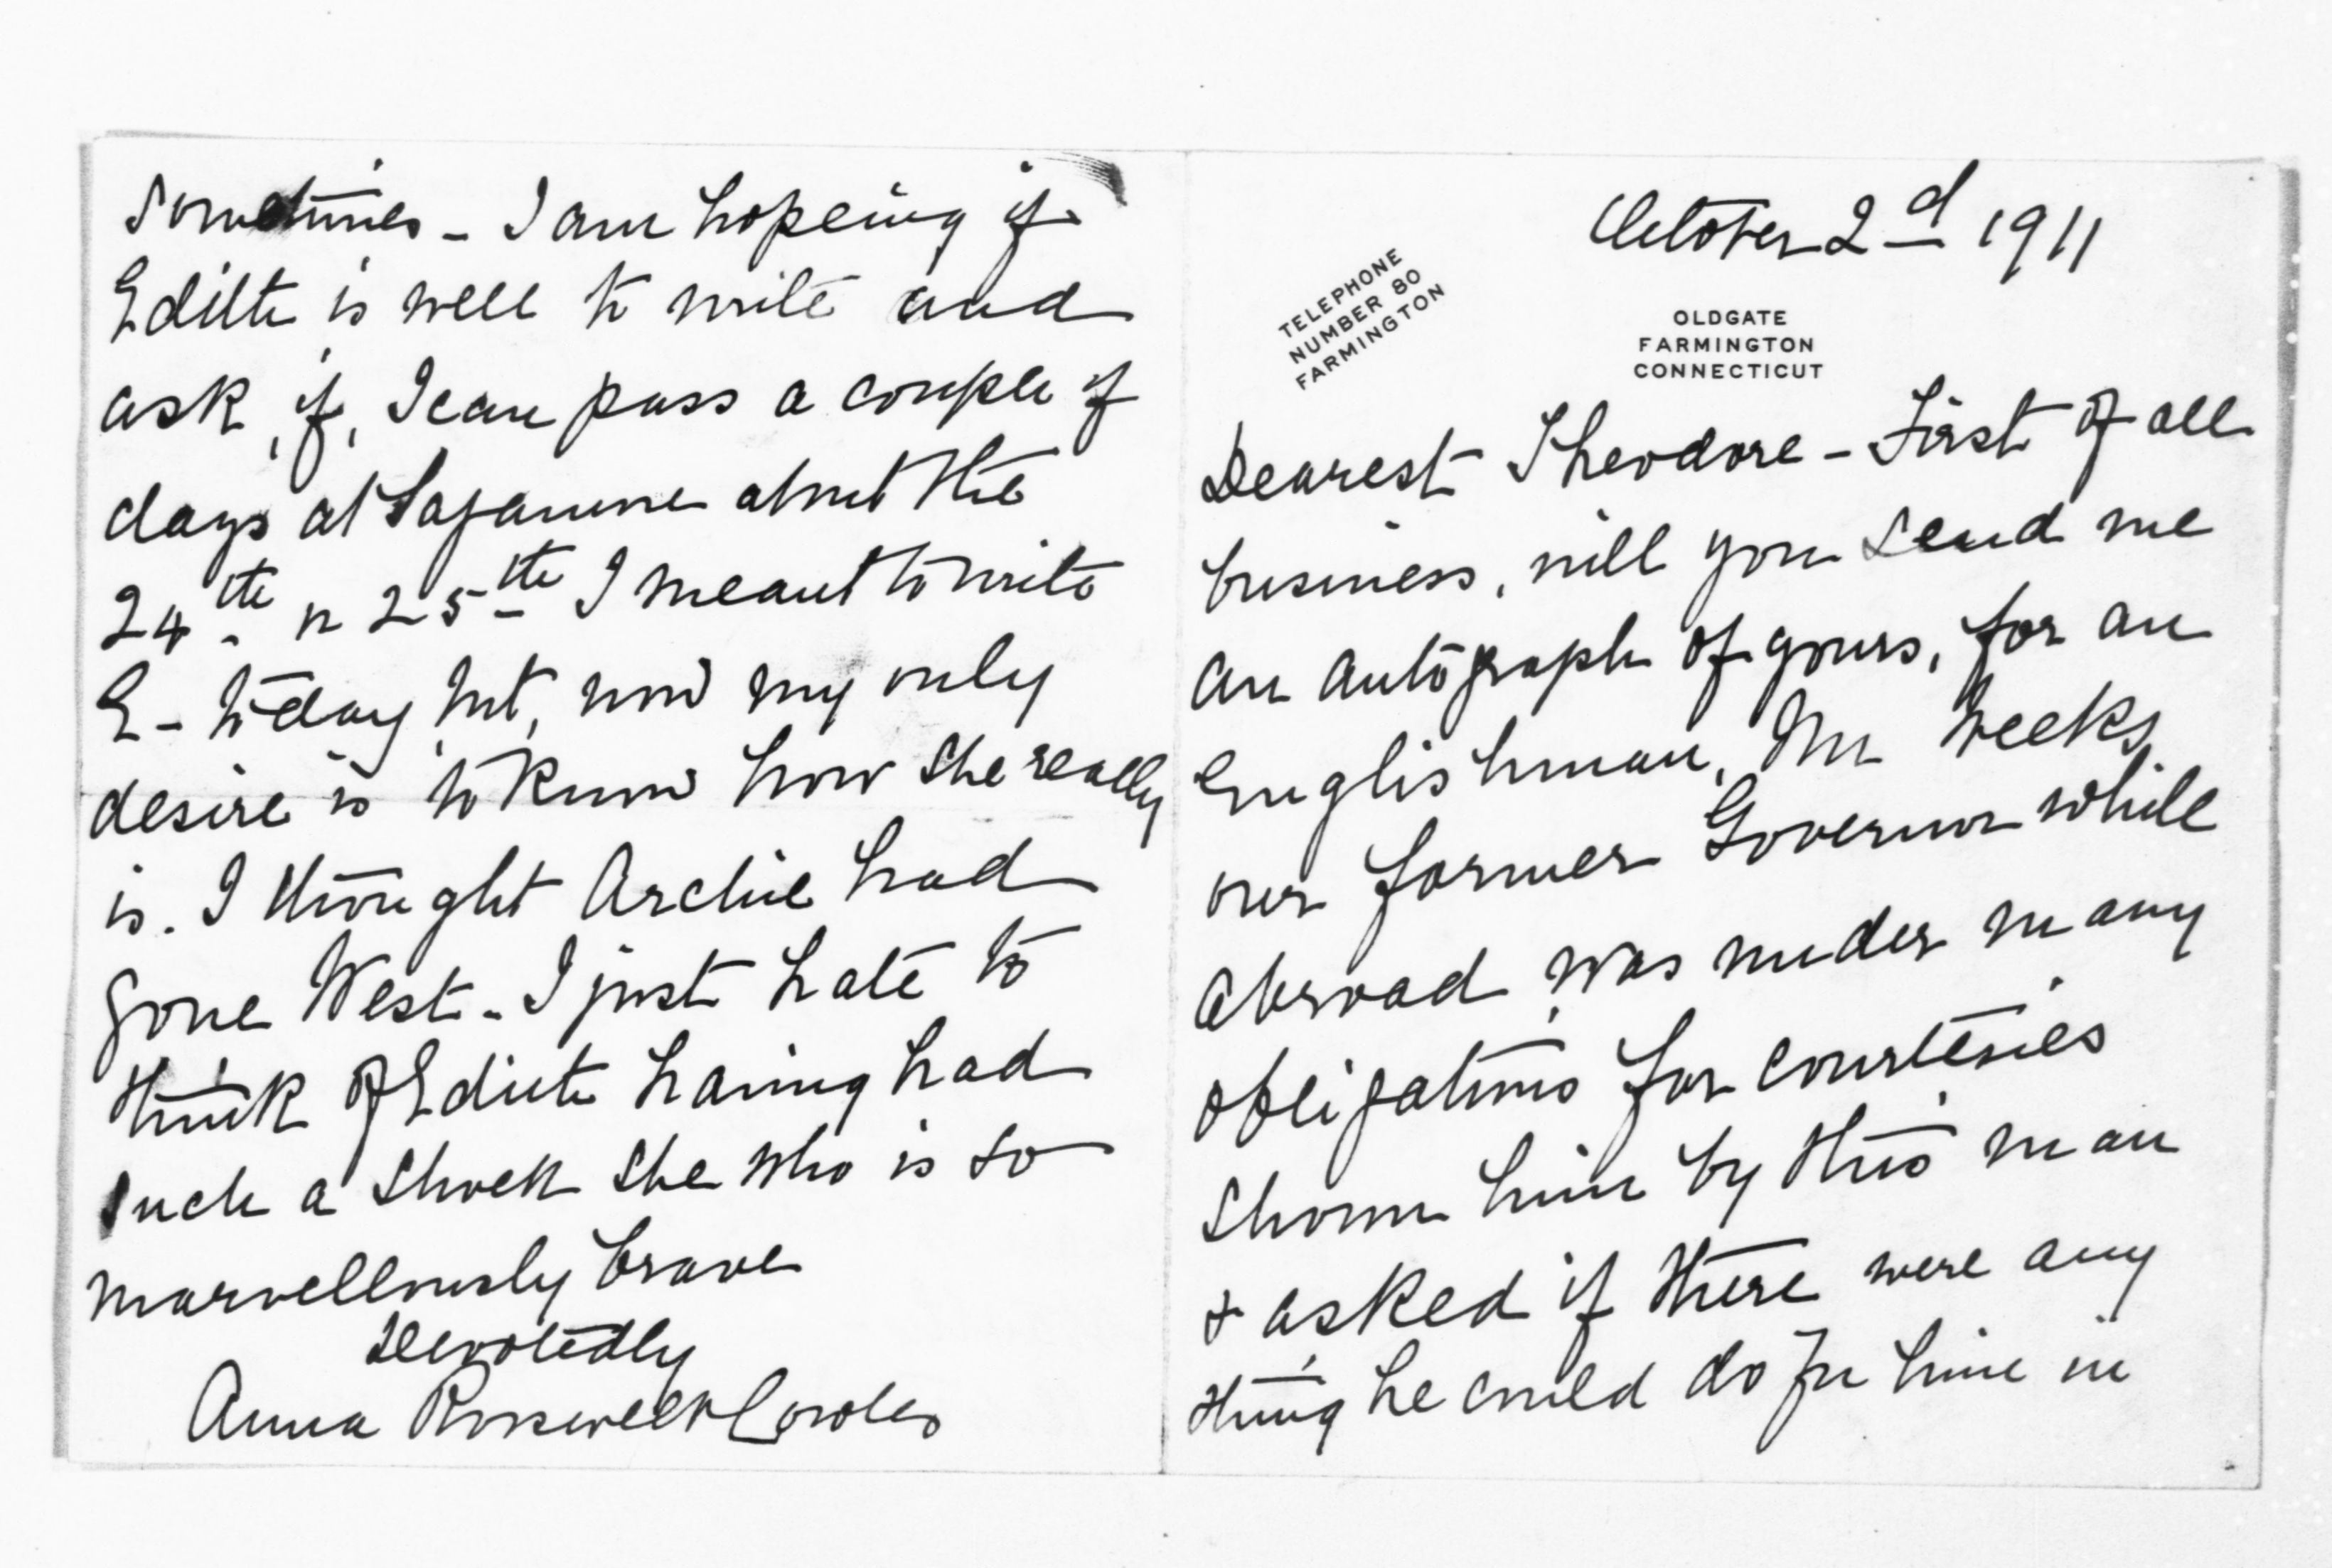 October 2d 1911
TELEPHONE
NUMBER 80
FARMINGTON
OLDGATE
FARMINGTON
CONNECTICUT
Dearest Theodore - First of all
business, will you send me
an autograph of yours, for an
Englishman, Mr Weeks,
our former Governor while
abroad, was under many
obligations for courtesies
shown him by this man
& asked if there were any
thing he could do for him in
sometimes - I am hopeing if
Edith is well to write and
ask, if, I can pass a couple of
days at Sagamore about the
24th or 25th I meant to write
E - to day but, now my only
desire is to know how she really
is. I thought Archie had
gone West - I just hate to
think of Edith having had
such a shock she who is so
marvellously brave
Devotedly
Anna Roosevelt Cowles